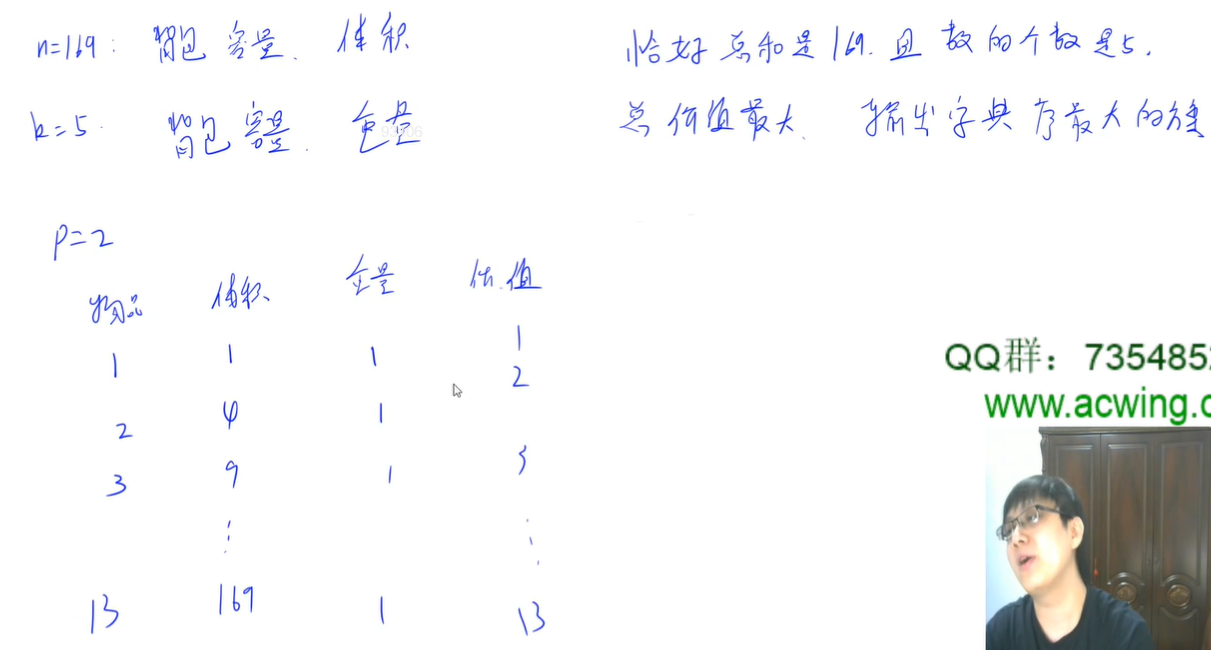 n=169: 背包容量. 体积
恰好总和是169. 且数的个数是5.
k=5. 背包容量. 重量
总价值最大. 输出字典序最大的方案
P=2
物品 体积 重量 价值
1 1 1 1
2 4 1 2
3 9 1 3
⋮ ⋮
13 169 1 13
QQ群：7354852
www.acwing.c